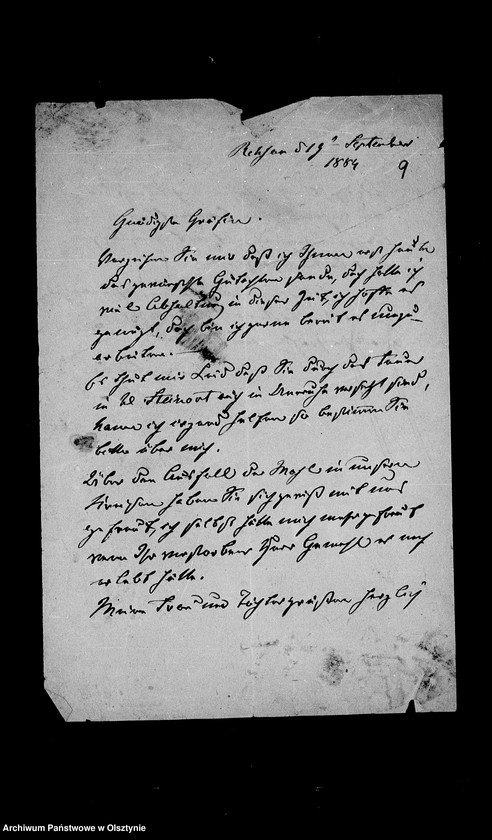 Rehsau d 19t September
1884
9
Gnädigste Gräfin.
Verzeihen Sie mir daß ich Ihnen erst heute
das gewünschte Gutachten sende, doch hatte ich
viel Abhaltung in dieser Zeit, ich hoffe es
genügt, doch bin ich gerne bereit es umzu-
arbeiten.
Es thut mir Leid daß Sie durch das
in Steinort auch in Unruhe versetzt sind,
kann ich irgend helfen so bestimmen Sie
bitte über mich.
Über den Ausfall der Wahl in unsern
Kreisen haben Sie sich gewiß mit uns
gefreut, ich selbst hätte mich mehr gefreut
wenn Ihr verstorbener Herr Gemahl es noch
erlebt hätte.
Meine Frau und Töchter grüßen herzlich
Archiwum Państwowe w Olsztynie